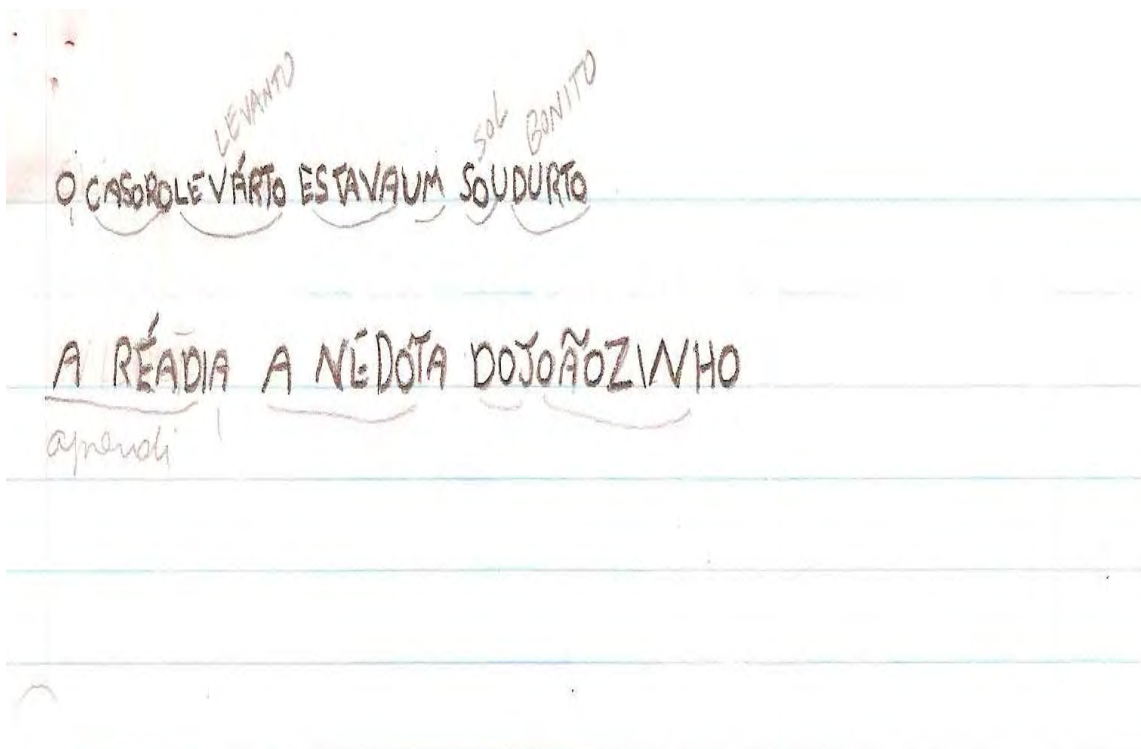 LEVANTO SOL BONITO
O CASOROLEVÁRTO ESTAVAUM SOUDURTO
A RÉADIA A NÉDOTA DOJOÃOZINHO
aprendi